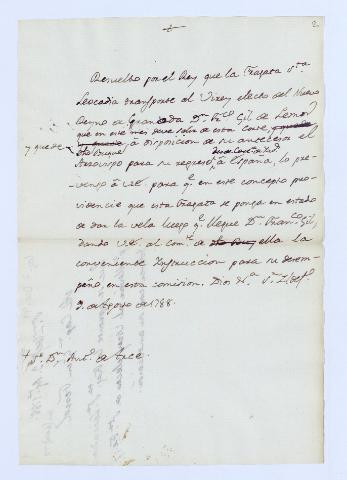 2
Resuelto por el Rey que la Fragata Sta
Leocadia transporte al Virey electo del Nuevo
Reyno de Granada Dn Franco Gil de Lemos,
que en este mes debe salir de esta Corte,
y quede
à disposicion de su antecesor el
Arzovispo para su regreso à España, lo pre-
vengo à V.E. para qe en este concepto pro-
videncie que esta Fragata se ponga en estado
de dar la vela luego qe llegue Dn Franco Gil,
dando V.E. al Comte de ella la
conveniente Instruccion para su desem-
peño en esta comision. Dios
de Agosto de 1788.
Sr Dn Anto de Arce.